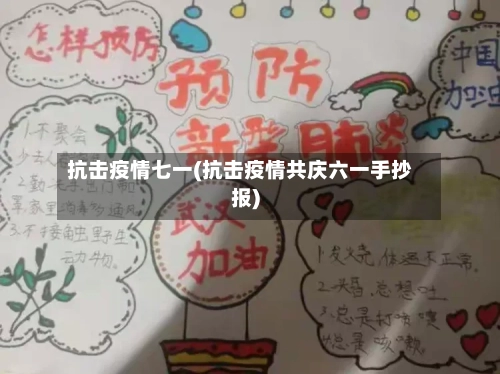 怎样预防
预防
中国
加油
新型肺炎
1.不聚会
抗击疫情七一(抗击疫情共庆六一手抄
报)
3.不接触野生
动物。
武汉
加油
1.发烧,体温不正常。
2.头昏,总想吐
3.总是打喷嚏
4.总是咳嗽。